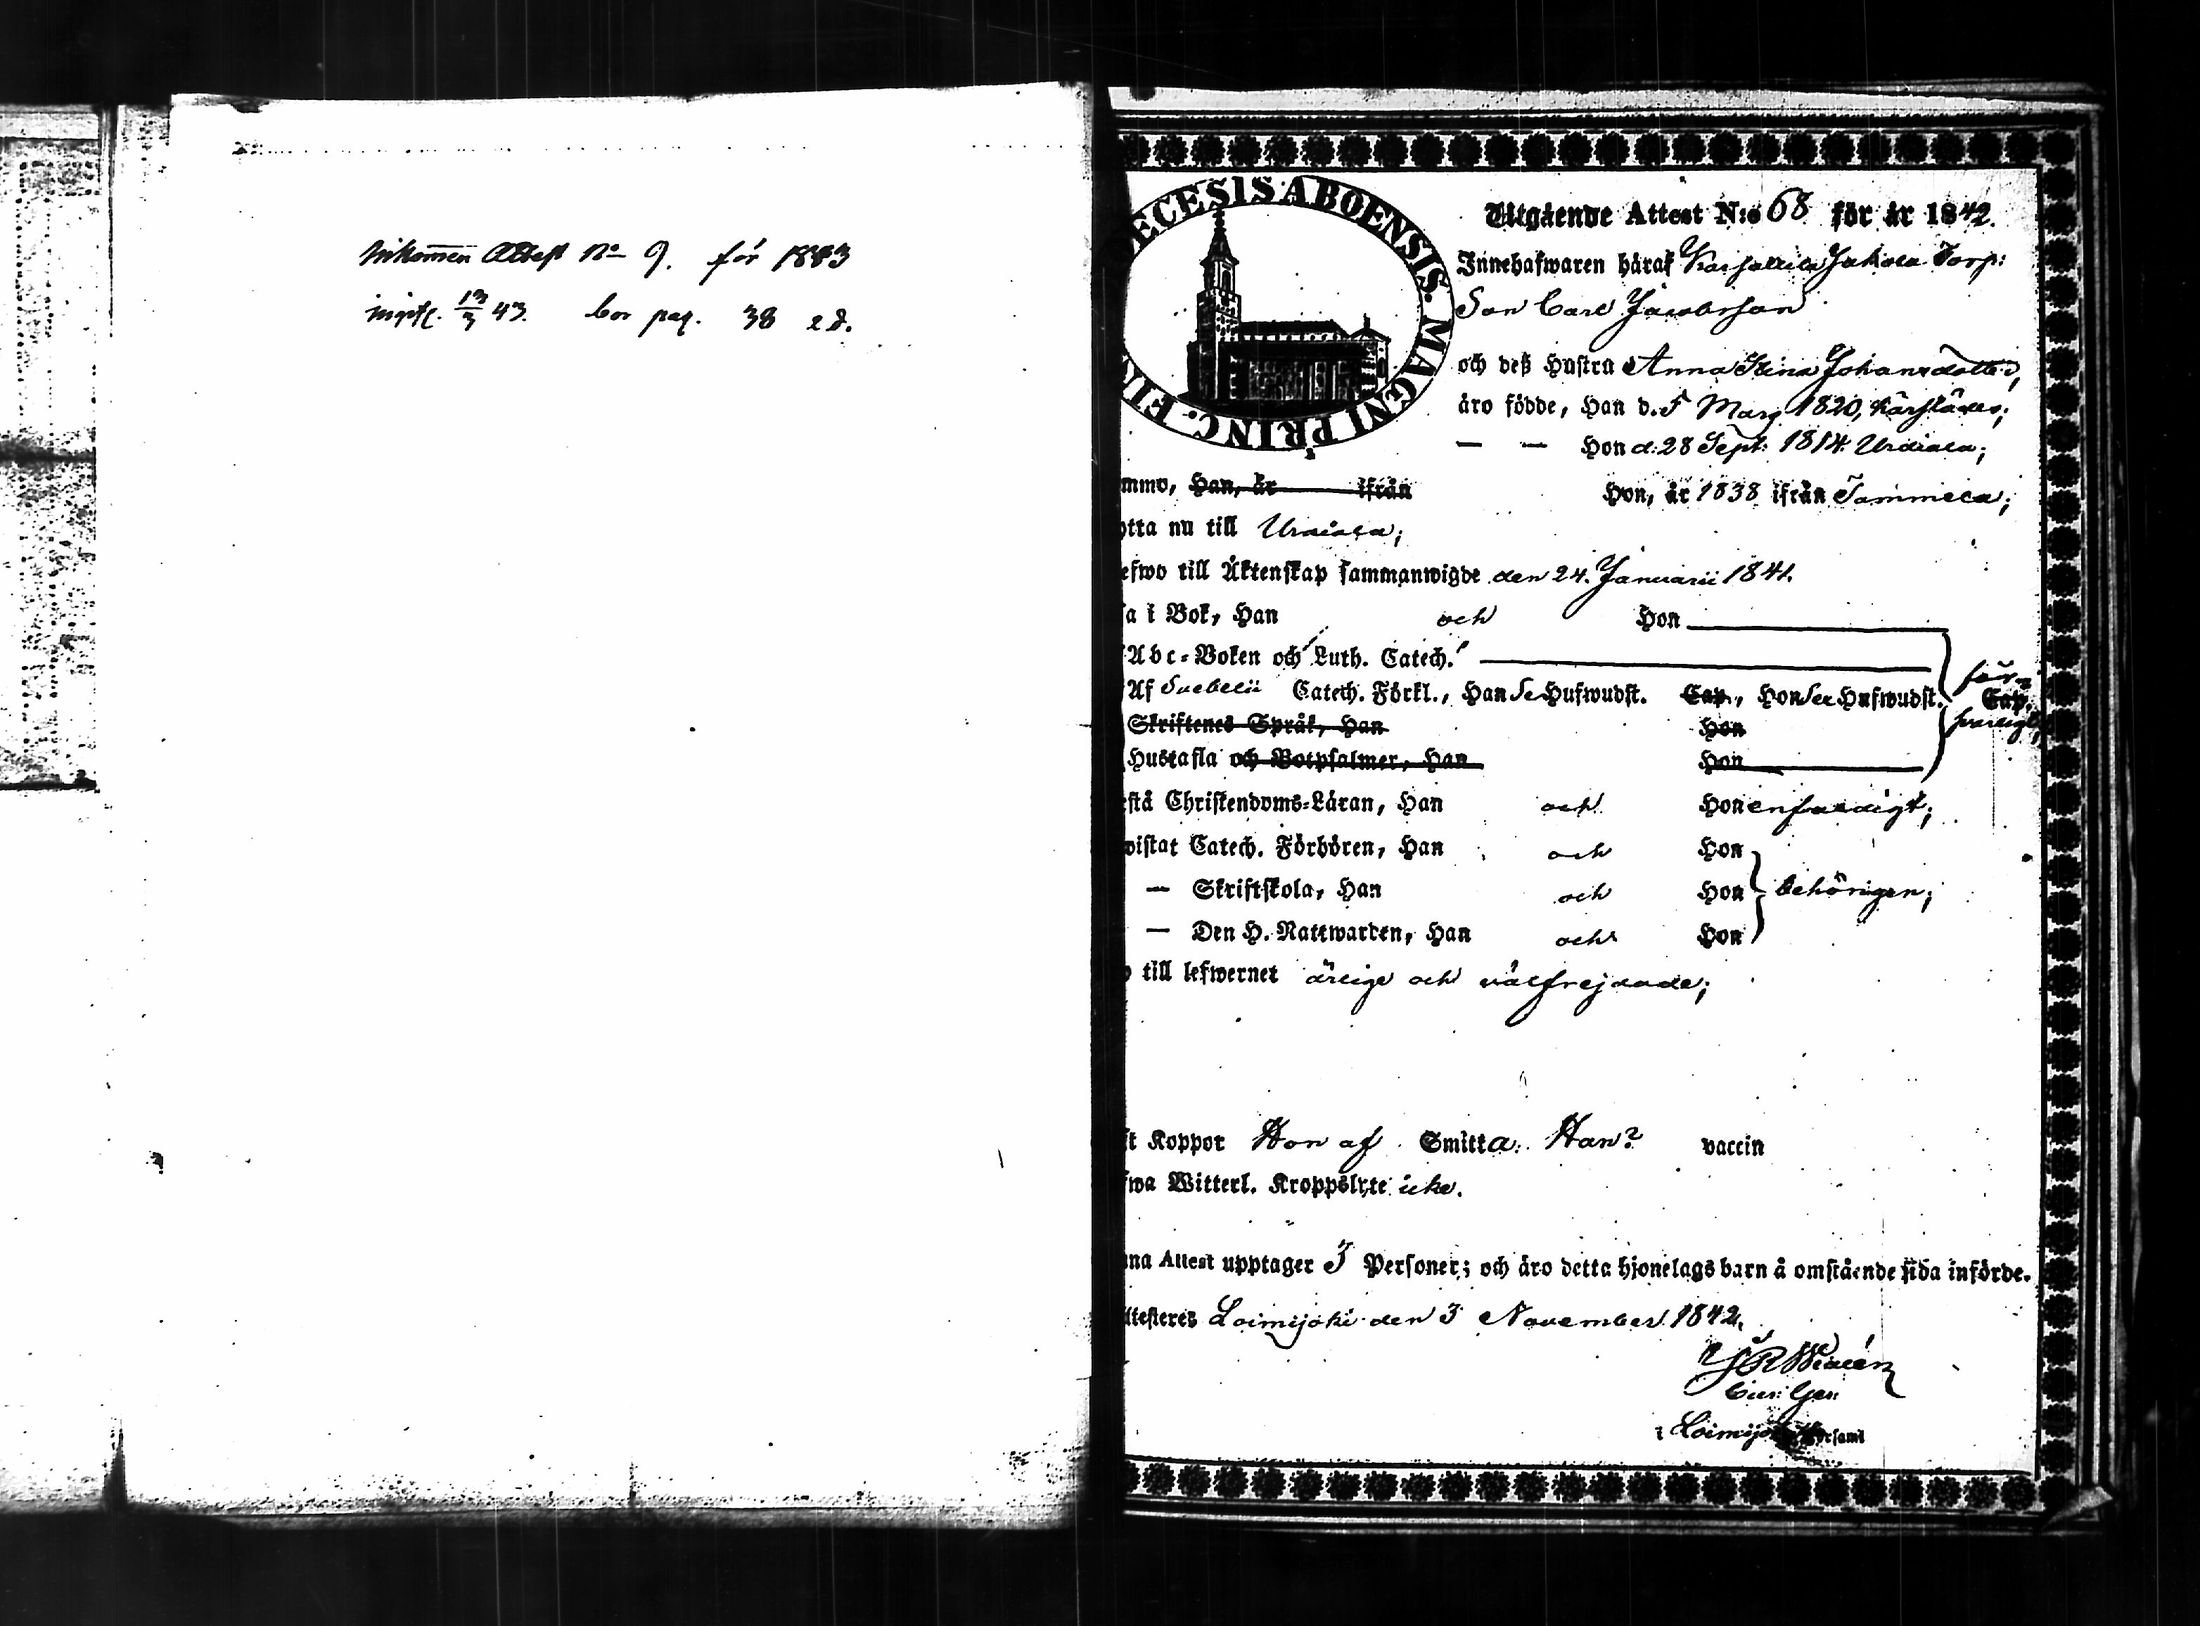 Inkommen Attest No 9. för 1843
inpk. 13/3 43. bor pag. 38 e d.
ECESIS ABOENSIS. MAGNI PRINC. FIN
Utgående Attest N:o 68 för år 1842.
Innehafwaren häraf Jakola Torp:
Son Carl Jacobsson
och deß Hustru Anna Stina Johansdotter,
äro födde, Han d. 5 Mars 1820, härstädes;
— — Hon d: 28 Sept: 1814. Urdiala;
mmo, Han, år ifrån Hon, år 1838 ifrån Tammela;
otta nu till Urdiala;
efwo till Äktenskap sammanwigde den 24. Januarii 1841.
a i Bok, Han och Hon
Abc-Boken och Luth. Catech.
Af Svebelii Catech. Förkl., Han Hufwudst. Cap., Hon Hufwudst. Cap.
Skriftenes Språk, Han Hon
Hustafla och Botpsalmer, Han Hon
stå Christendoms-Läran, Han och Hon enfaldigt;
wistat Catech. Förhören, Han och Hon
— Skriftskola, Han och Hon behörigen;
— Den H. Nattwarden, Han och Hon
till lefwernet ärlige och välfrejdade;
ft Koppor Hon af Smitta. Han? vaccin
fwa Witterl. Kroppslyte icke.
nna Attest upptager 3 Personer; och äro detta hjonelags barn å omstående sida införde.
ttesteras Loimijoki den 3 November 1842.
i Loimijoki Församl